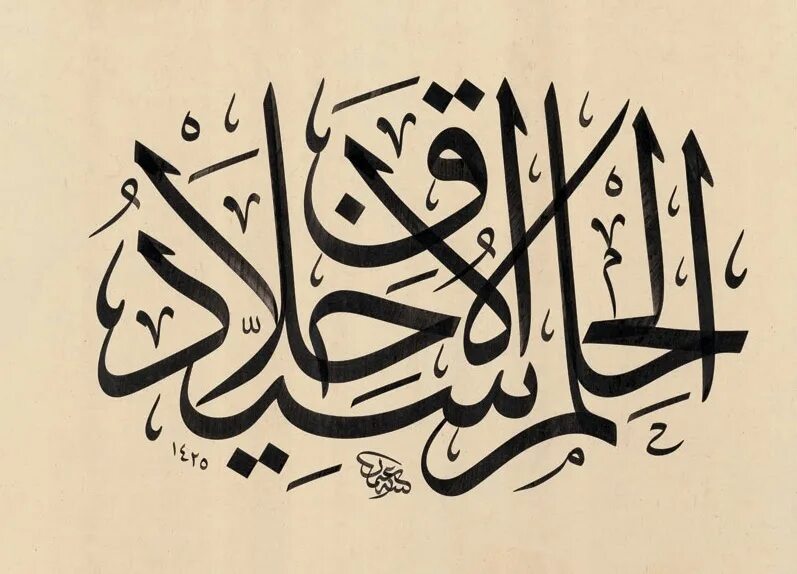 الحِلْم سَيِّدُ الاَخْلاق
١٤٢٥